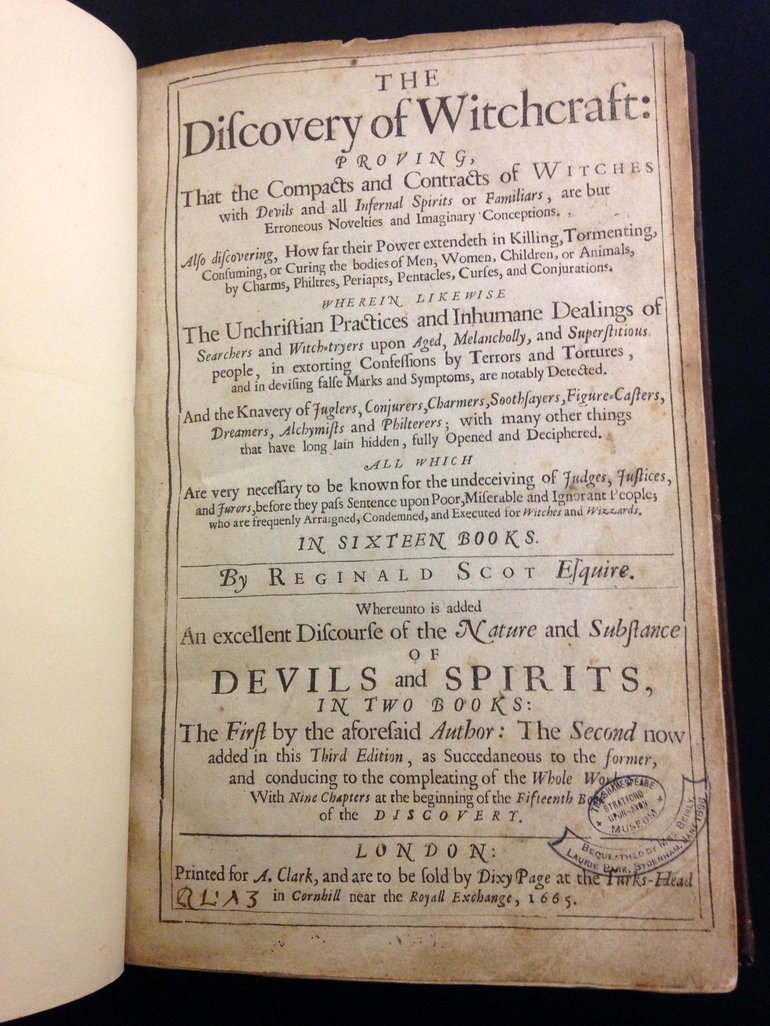 THE
Diſcovery of Witchcraft:
PROVING,
That the Compacts and Contracts of WITCHES
with Devils and all Infernal Spirits or Familiars, are but
Erroneous Novelties and Imaginary Conceptions.
Alſo diſcovering, How far their Power extendeth in Killing, Tormenting,
Conſuming, or Curing the bodies of Men, Women, Children, or Animals,
by Charms, Philtres, Periapts, Pentacles, Curſes, and Conjurations.
WHEREIN LIKEWISE
The Unchriſtian Practices and Inhumane Dealings of
Searchers and Witch-tryers upon Aged, Melancholly, and Superſtitious
people, in extorting Confeſſions by Terrors and Tortures,
and in deviſing falſe Marks and Symptoms, are notably Detected.
And the Knavery of Juglers, Conjurers, Charmers, Soothſayers, Figure-Caſters,
Dreamers, Alchymiſts and Philterers; with many other things
that have long lain hidden, fully Opened and Deciphered.
ALL WHICH
Are very neceſſary to be known for the undeceiving of Judges, Juſtices,
and Jurors, before they paſs Sentence upon Poor, Miſerable and Ignorant People;
who are frequenly Arraigned, Condemned, and Executed for Witches and Wizzards.
IN SIXTEEN BOOKS.
By REGINALD SCOT Eſquire.
Whereunto is added
An excellent Diſcourſe of the Nature and Subſtance
OF
DEVILS and SPIRITS,
IN TWO BOOKS:
The Firſt by the aforeſaid Author: The Second now
added in this Third Edition, as Succedaneous to the former,
and conducing to the compleating of the Whole Work
With Nine Chapters at the beginning of the Fifteenth
of the DISCOVERY.
THE SHAKESPEARE
STRATFORD
UPON-AVON
MUSEUM
BEQUEATHED BY MRS
LAURIE PARK, SYDENHAM,
LONDON:
Printed for A. Clark, and are to be ſold by Dixy Page at the Turks-Head
in Cornhill near the Royall Exchange, 1665.